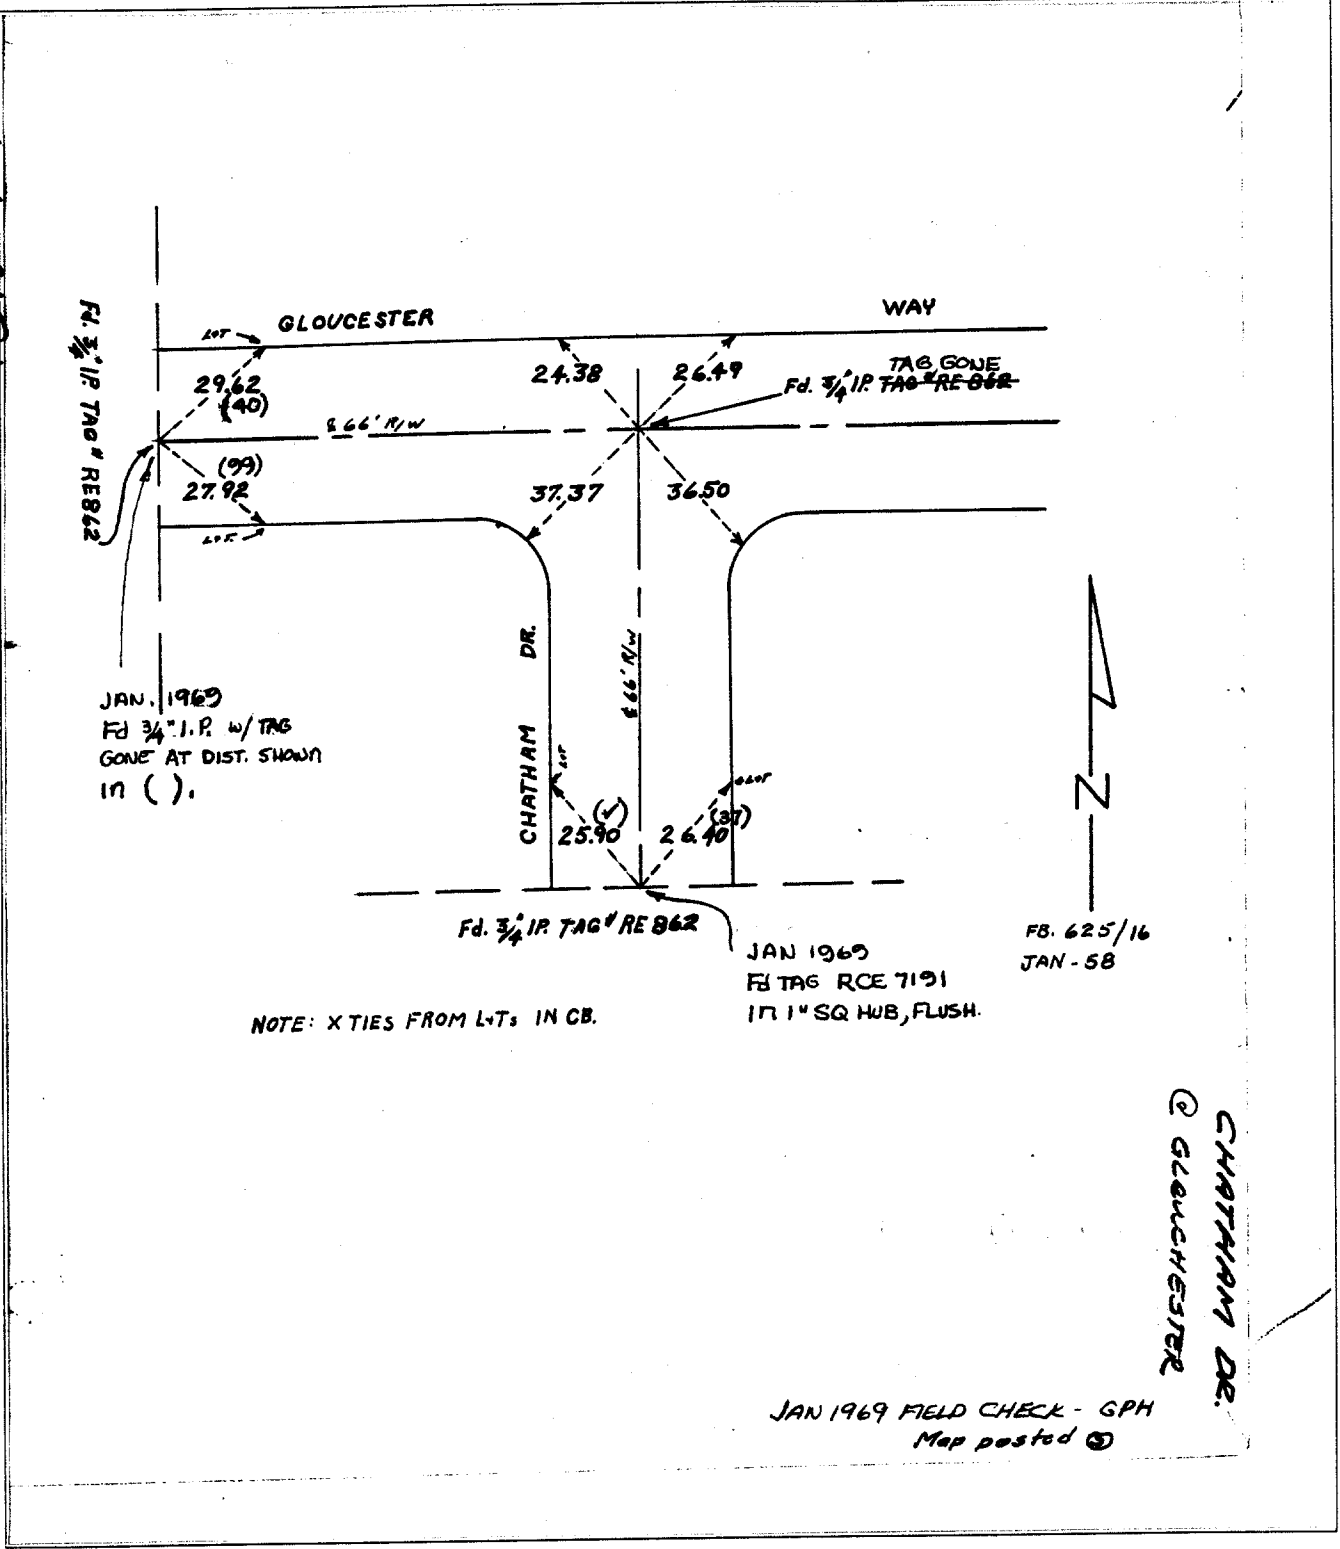 GLOUCESTER WAY
LOT
29.62
(40)
24.38
26.49
TAG GONE
Fd. 3/4" IP. TAG # RE 862
Fd. 3/4" IP. TAG # RE862
℄ 66' R/W
(99)
27.92
LOT.
37.37
36.50
CHATHAM DR.
℄ 66' R/W
JAN. 1969
Fd 3/4" I.P. w/ TAG
GONE AT DIST. SHOWN
in ( ).
LOT
LOT
(✓)
25.90
(37)
26.40
N
Fd. 3/4" IP. TAG # RE 862
JAN 1969
Fd TAG RCE 7191
IN 1" SQ HUB, FLUSH.
FB. 625/16
JAN - 58
NOTE: X TIES FROM L+Ts IN CB.
CHATHAM DR.
@ GLOUCHESTER
JAN 1969 FIELD CHECK - GPH
Map posted